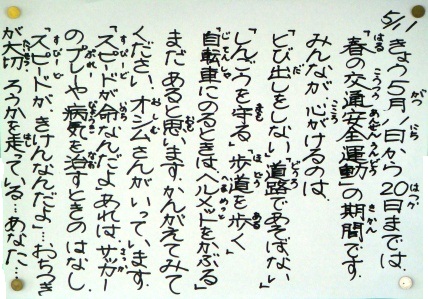 5/11
きょう5月11日から20日までは、
「春の交通安全運動」の期間です。
みんなが心がけるのは、
「とび出しをしない」「道路であそばない」
「しんごうを守る」「歩道を歩く」
「自転車にのるときはヘルメットをかぶる」
まだあると思います。かんがえてみて
ください。オシムさんがいっています。
「スピードが命なんだよ」あれは、サッカー
のプレーや病気を治すときのはなし。
「スピードが、きけんなんだよ」…おちつき
が大切。ろうかを走っている…あなた…